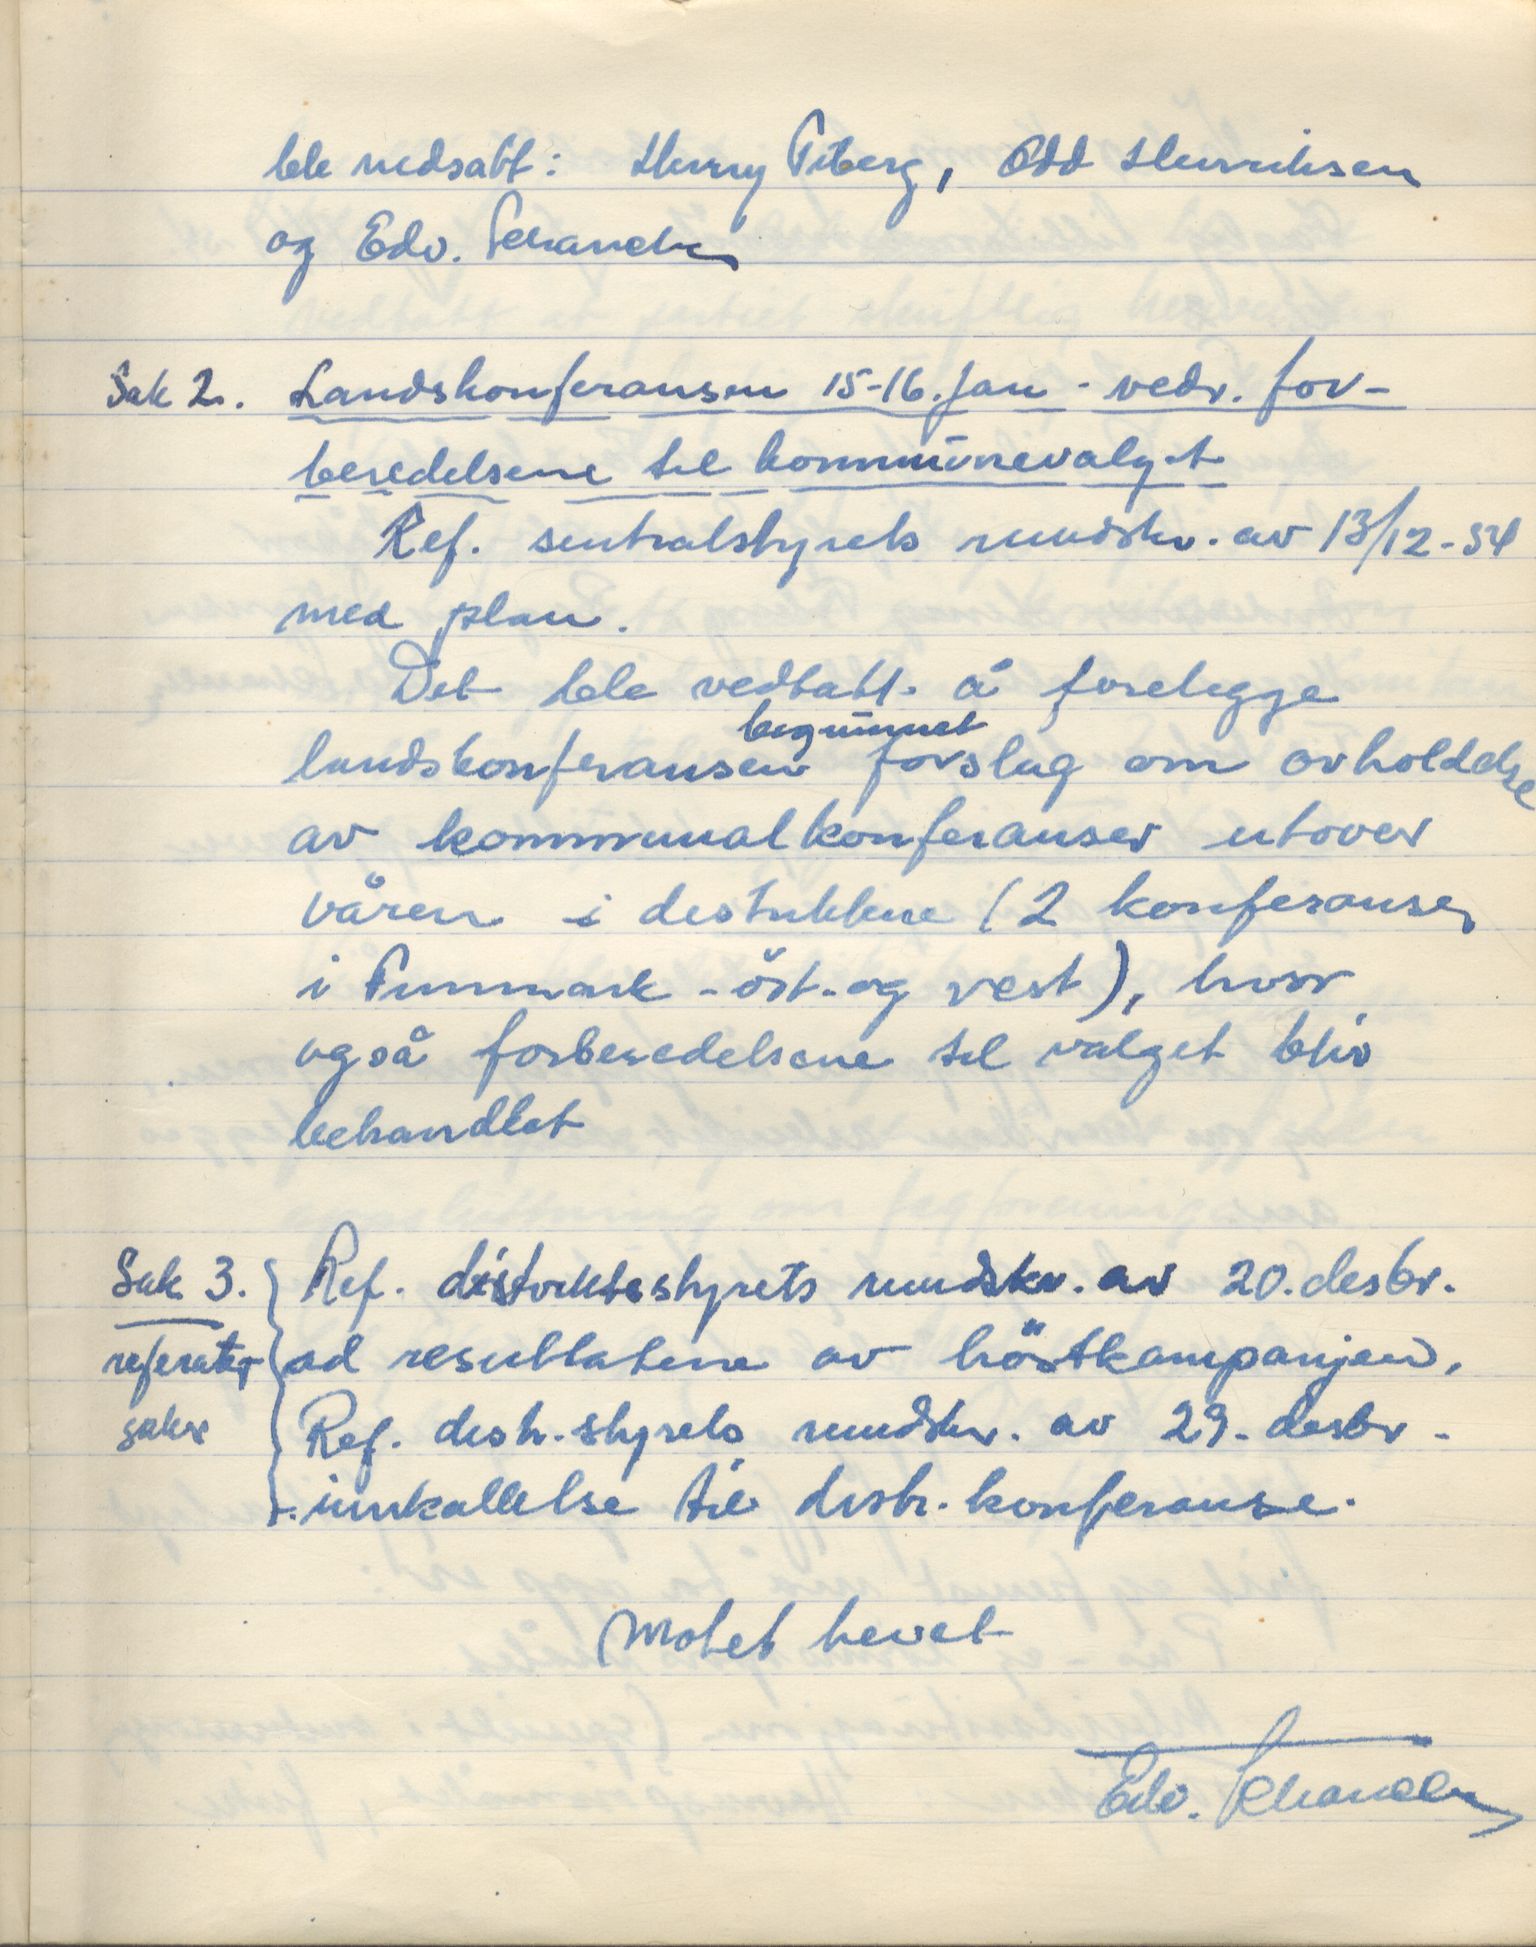 ble nedsatt: Henry Fiberg, Odd Henriksen
og Edv. Schancke
Sak 2. Landskonferansen 15-16. jan - vedr. for-
beredelsene til kommunevalget
Ref. sentralstyrets rundskr. av 13/12-54
med plan.
Det ble vedtatt å forelegge
begrunnet
landskonferansen forslag om avholdelse
av kommunalkonferanser utover
våren i distriktene (2 konferanser
i Finnmark - öst- og vest), hvor
også forberedelsene til valget blir
behandlet
Sak 3. Ref. distriktsstyrets rundskr. av 20. desbr.
referat- ad resultatene av höstkampanjen.
saker Ref. distr. styrets rundskr. av 29. desbr -
innkallelse til distr. konferanse.
Motet hevet
Edv. Schancke